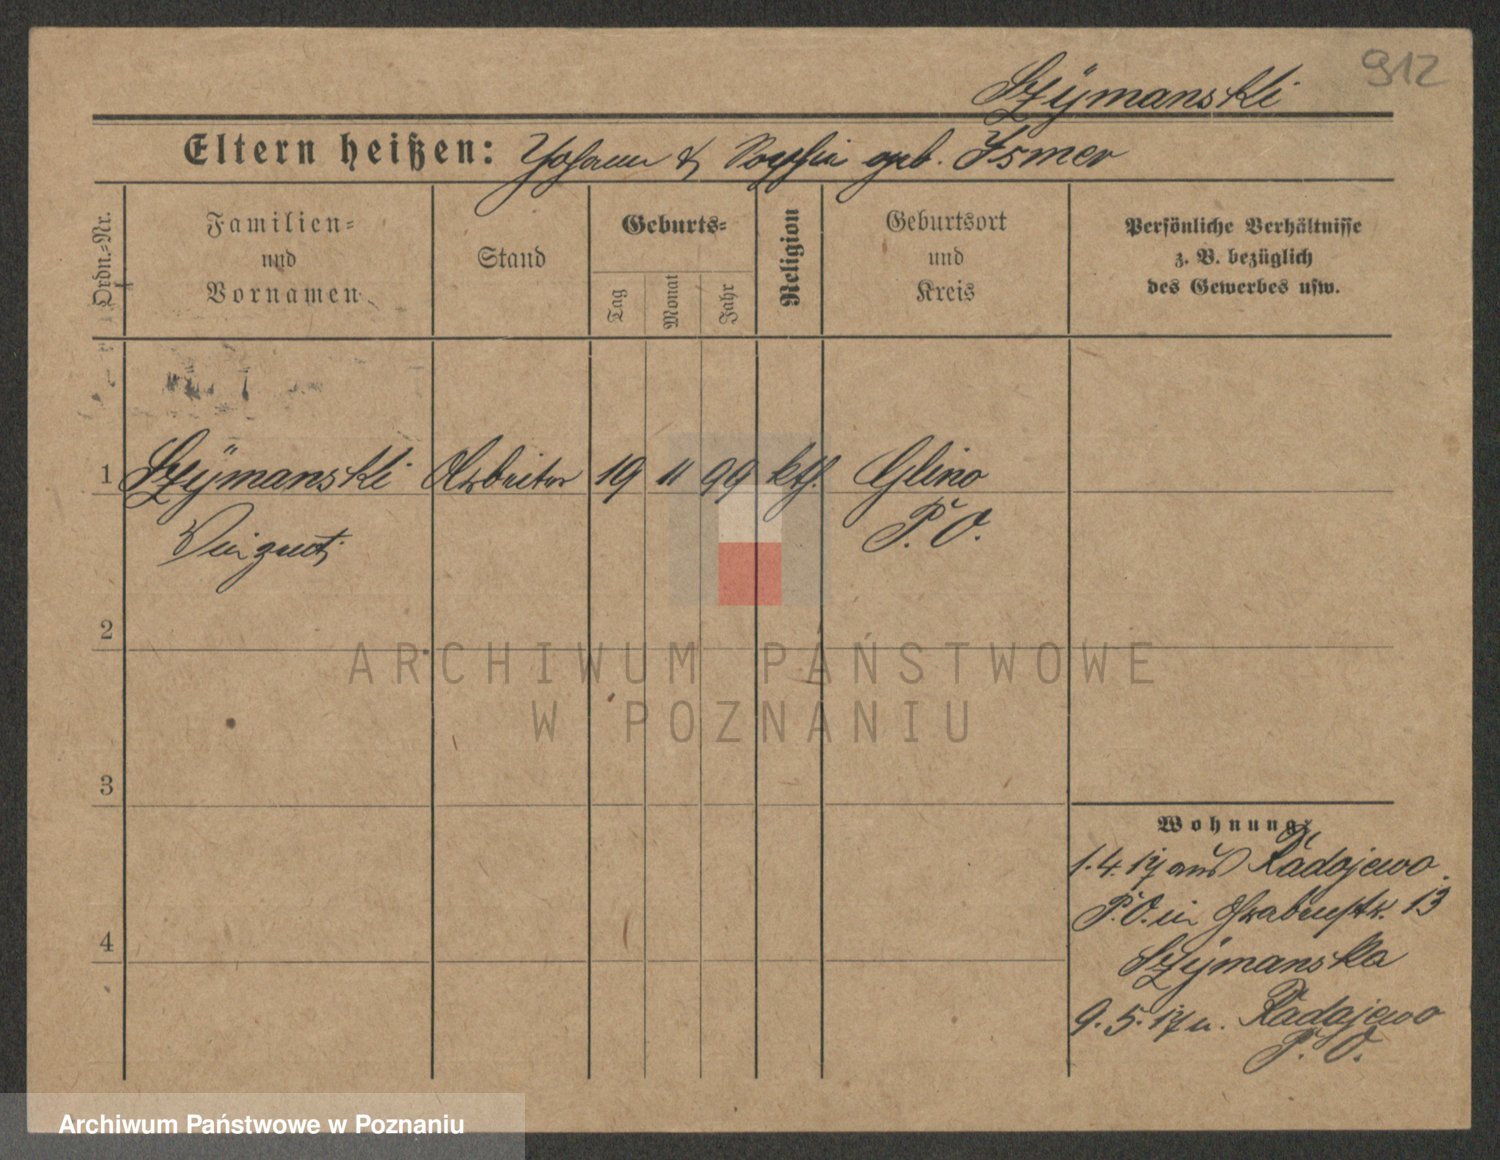 912
Szÿmanski
Eltern heißen: Johann & Sophie geb. Ismer
Ordn.-Nr.
Familien-
und
Vornamen
Stand
Geburts-
Tag
Monat
Jahr
Religion
Geburtsort
und
Kreis
Persönliche Verhältnisse
z. B. bezüglich
des Gewerbes usw.
1 Szÿmanski Arbeiter 19 11 99 kth. Glino
Vinzent P. O.
2
3
4
Wohnung:
1.4.17 aus Radojewo
P. O. in Grabenstr. 13
Szÿmanska
9.5.17 n. Radojewo
P. O.
ARCHIWUM PAŃSTWOWE
W POZNANIU
Archiwum Państwowe w Poznaniu